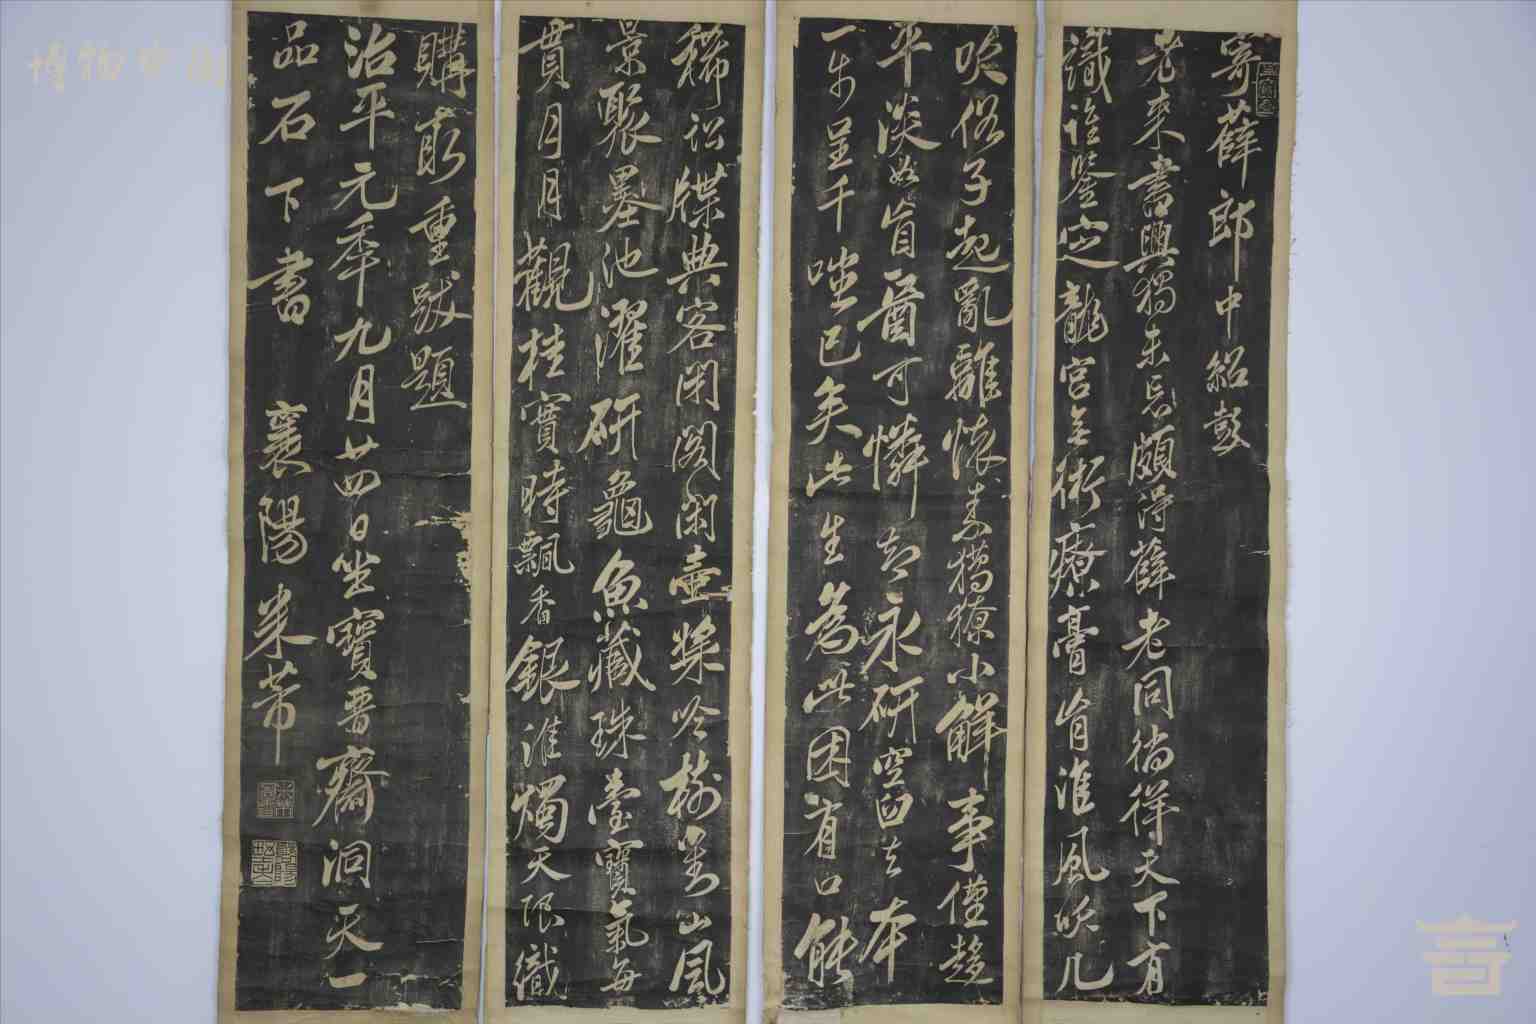 博物中國
寄薛郎中紹彭
老來書興獨未忘頗得薛老同徜徉天下有
識誰鑒定龍宮無術療膏肓淮風吹几
吹俗子起亂離懷素獦獠小解事僅趍
平淡如盲醫可憐智永研空臼去本
一步呈千嗤已矣此生為此困有口能
稀訟牒典客閉閤閑壺漿吟樹對山風
景聚墨池濯研龜魚藏珠臺寶氣每
貫月月觀桂實時飄香銀淮燭天限織
購求重跋題
治平元年九月廿四日坐寶晉齋洞天一
品石下書 襄陽米芾